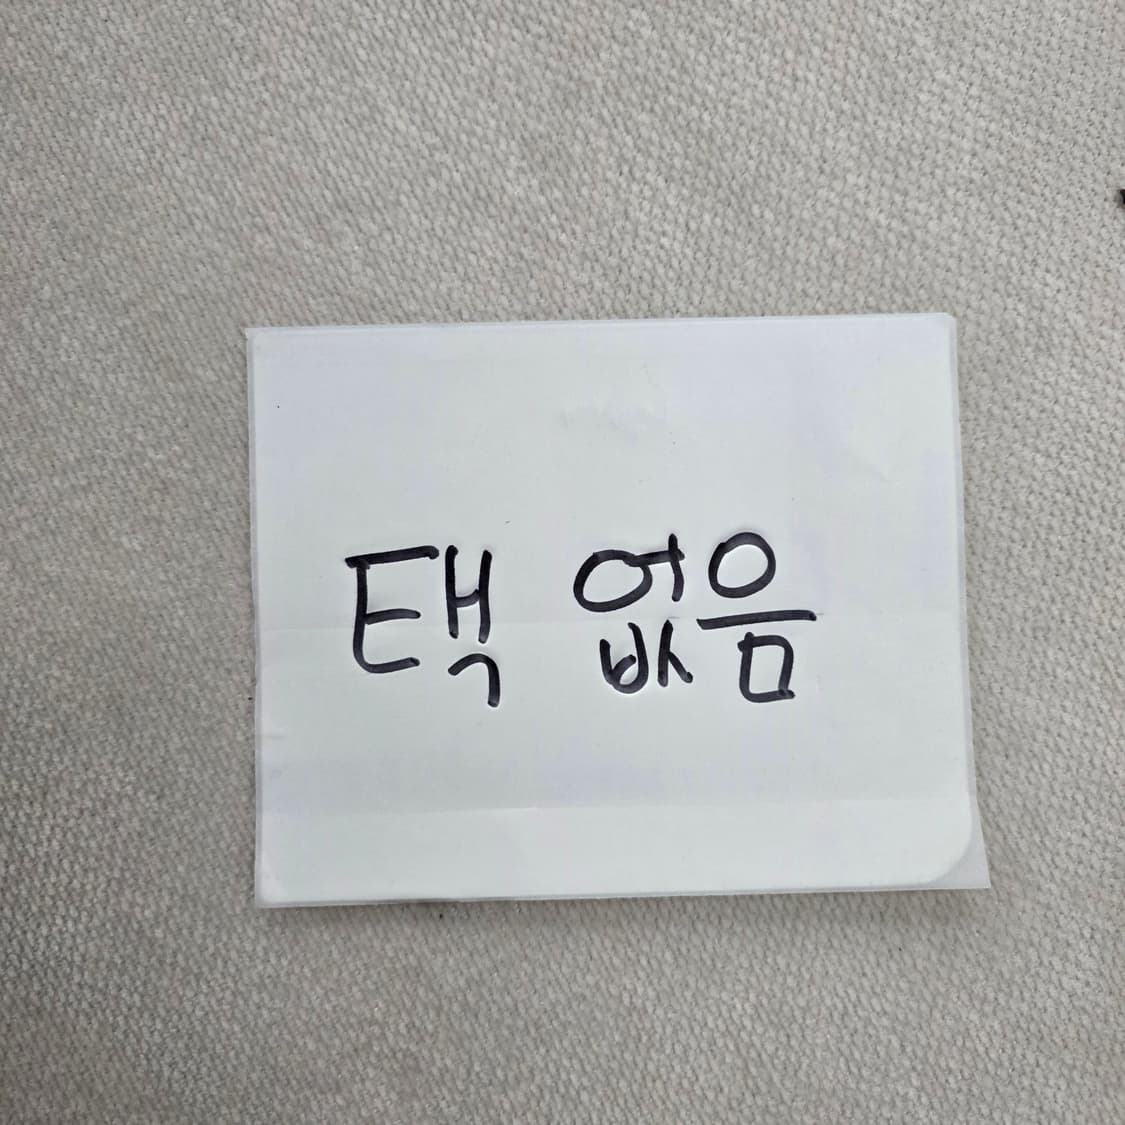 택 없음